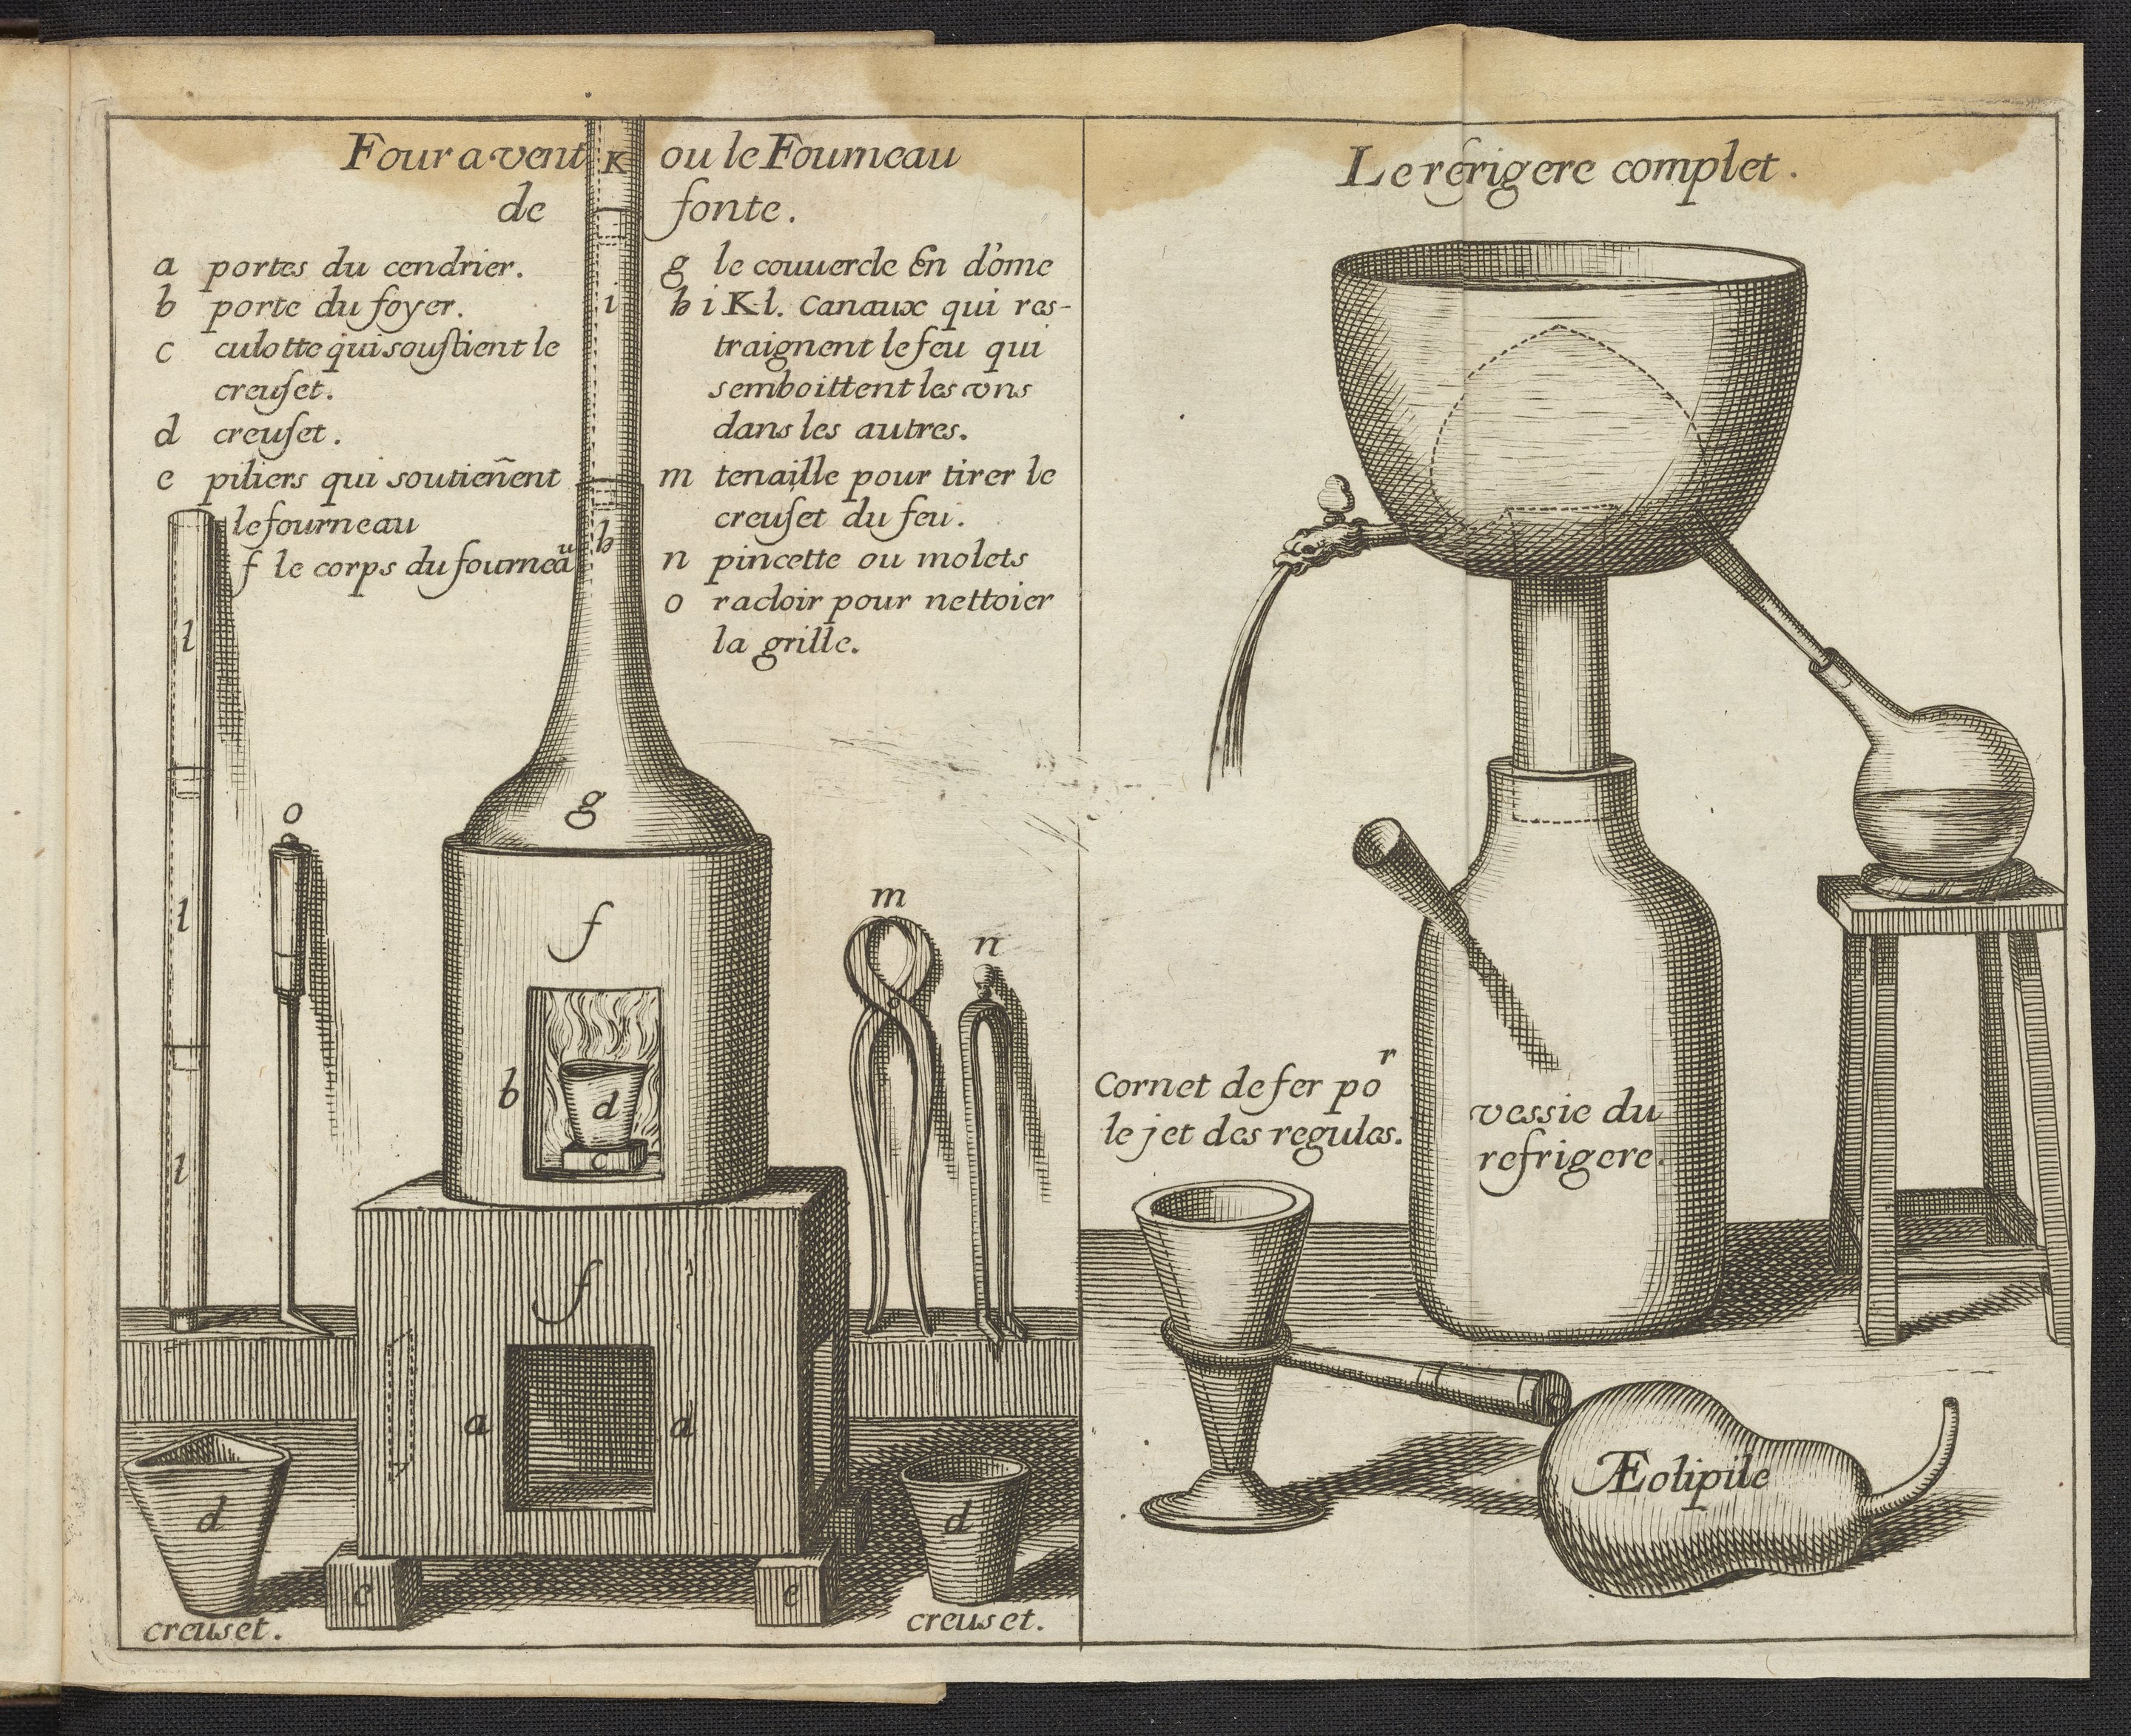 Four a vent K ou le Fourneau
de fonte.
a portes du cendrier.
b porte du foyer.
c culotte qui souſtient le
creuſet.
d creuſet.
e piliers qui soutieñent
le fourneau
f le corps du fourneaᵘ
g le couuercle En dôme
h i K l. Canaux qui res-
traignent le feu qui
semboittent les vns
dans les autres.
m tenaille pour tirer le
creuſet du feu.
n pincette ou molets
o racloir pour nettoier
la grille.
i
h
l
l
l
o
g
f
m
n
b
d
c
f
a
d
e
e
d
creuset.
d
creuset.
Le refrigere complet.
Cornet de fer poʳ
le jet des regules.
vessie du
refrigere.
Æolipile